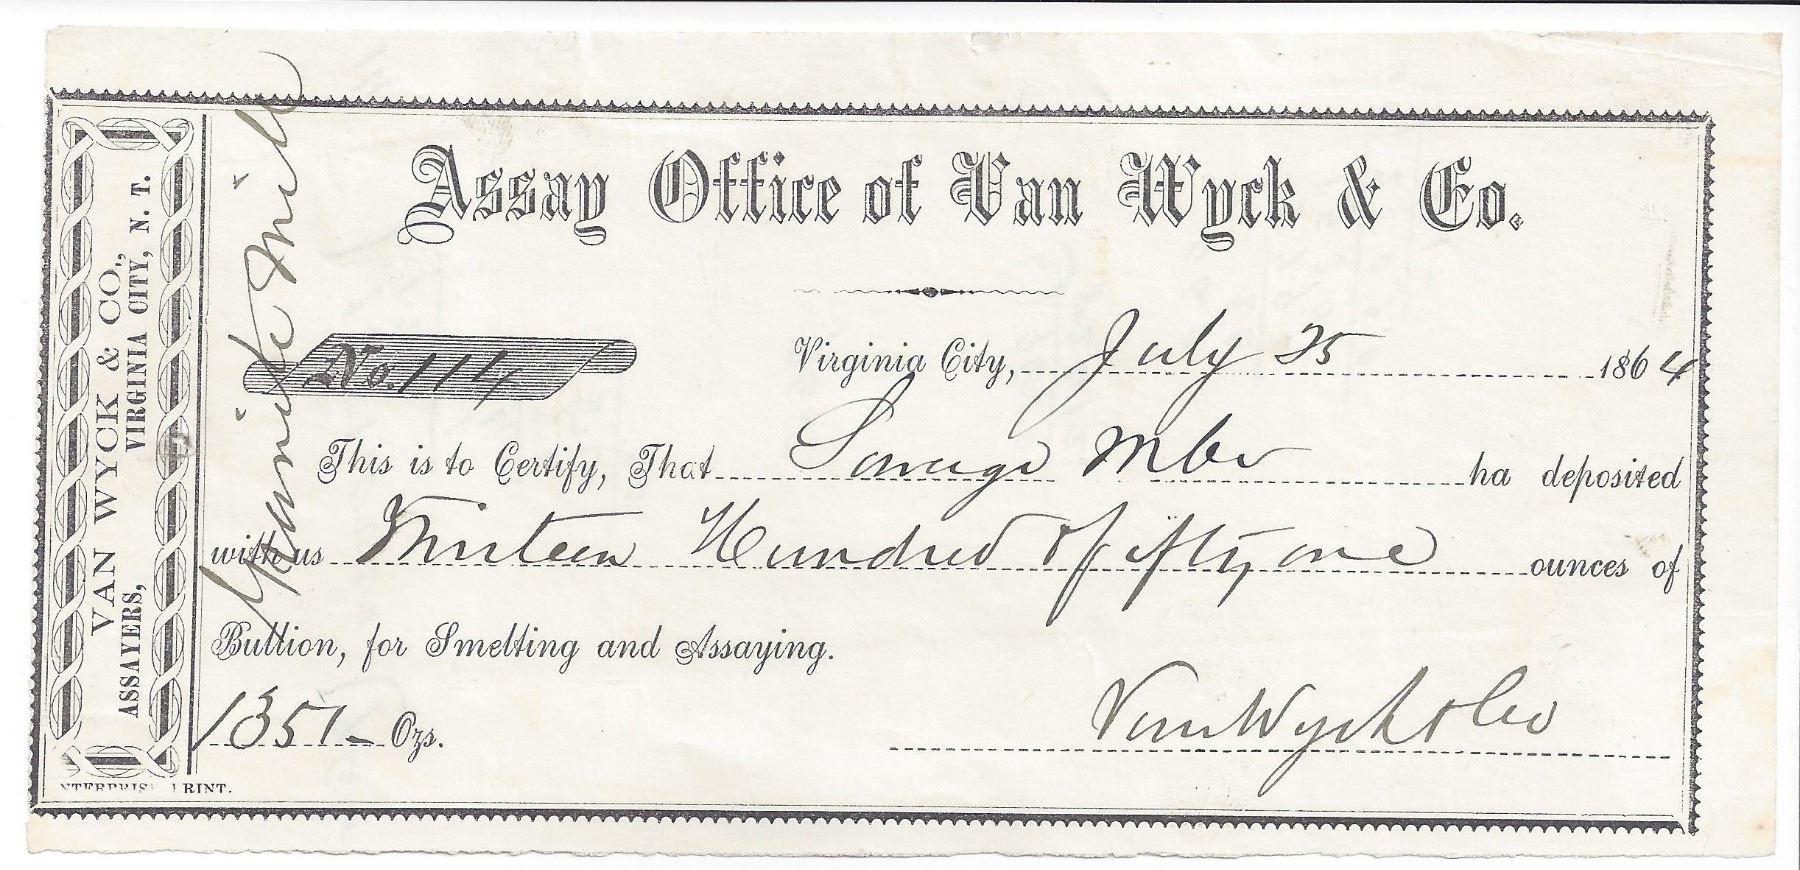 Assay Office of Van Wyck & Co.
VAN WYCK & CO.,
ASSAYERS, VIRGINIA CITY, N. T.
Granite Mill
No. 114
Virginia City, July 25 1864
This is to Certify, That Savage M Co ha deposited
with us Thirteen Hundred & fifty one ounces of
Bullion, for Smelting and Assaying.
1351 - Ozs.
Van Wyck & Co
NTERPRISE PRINT.